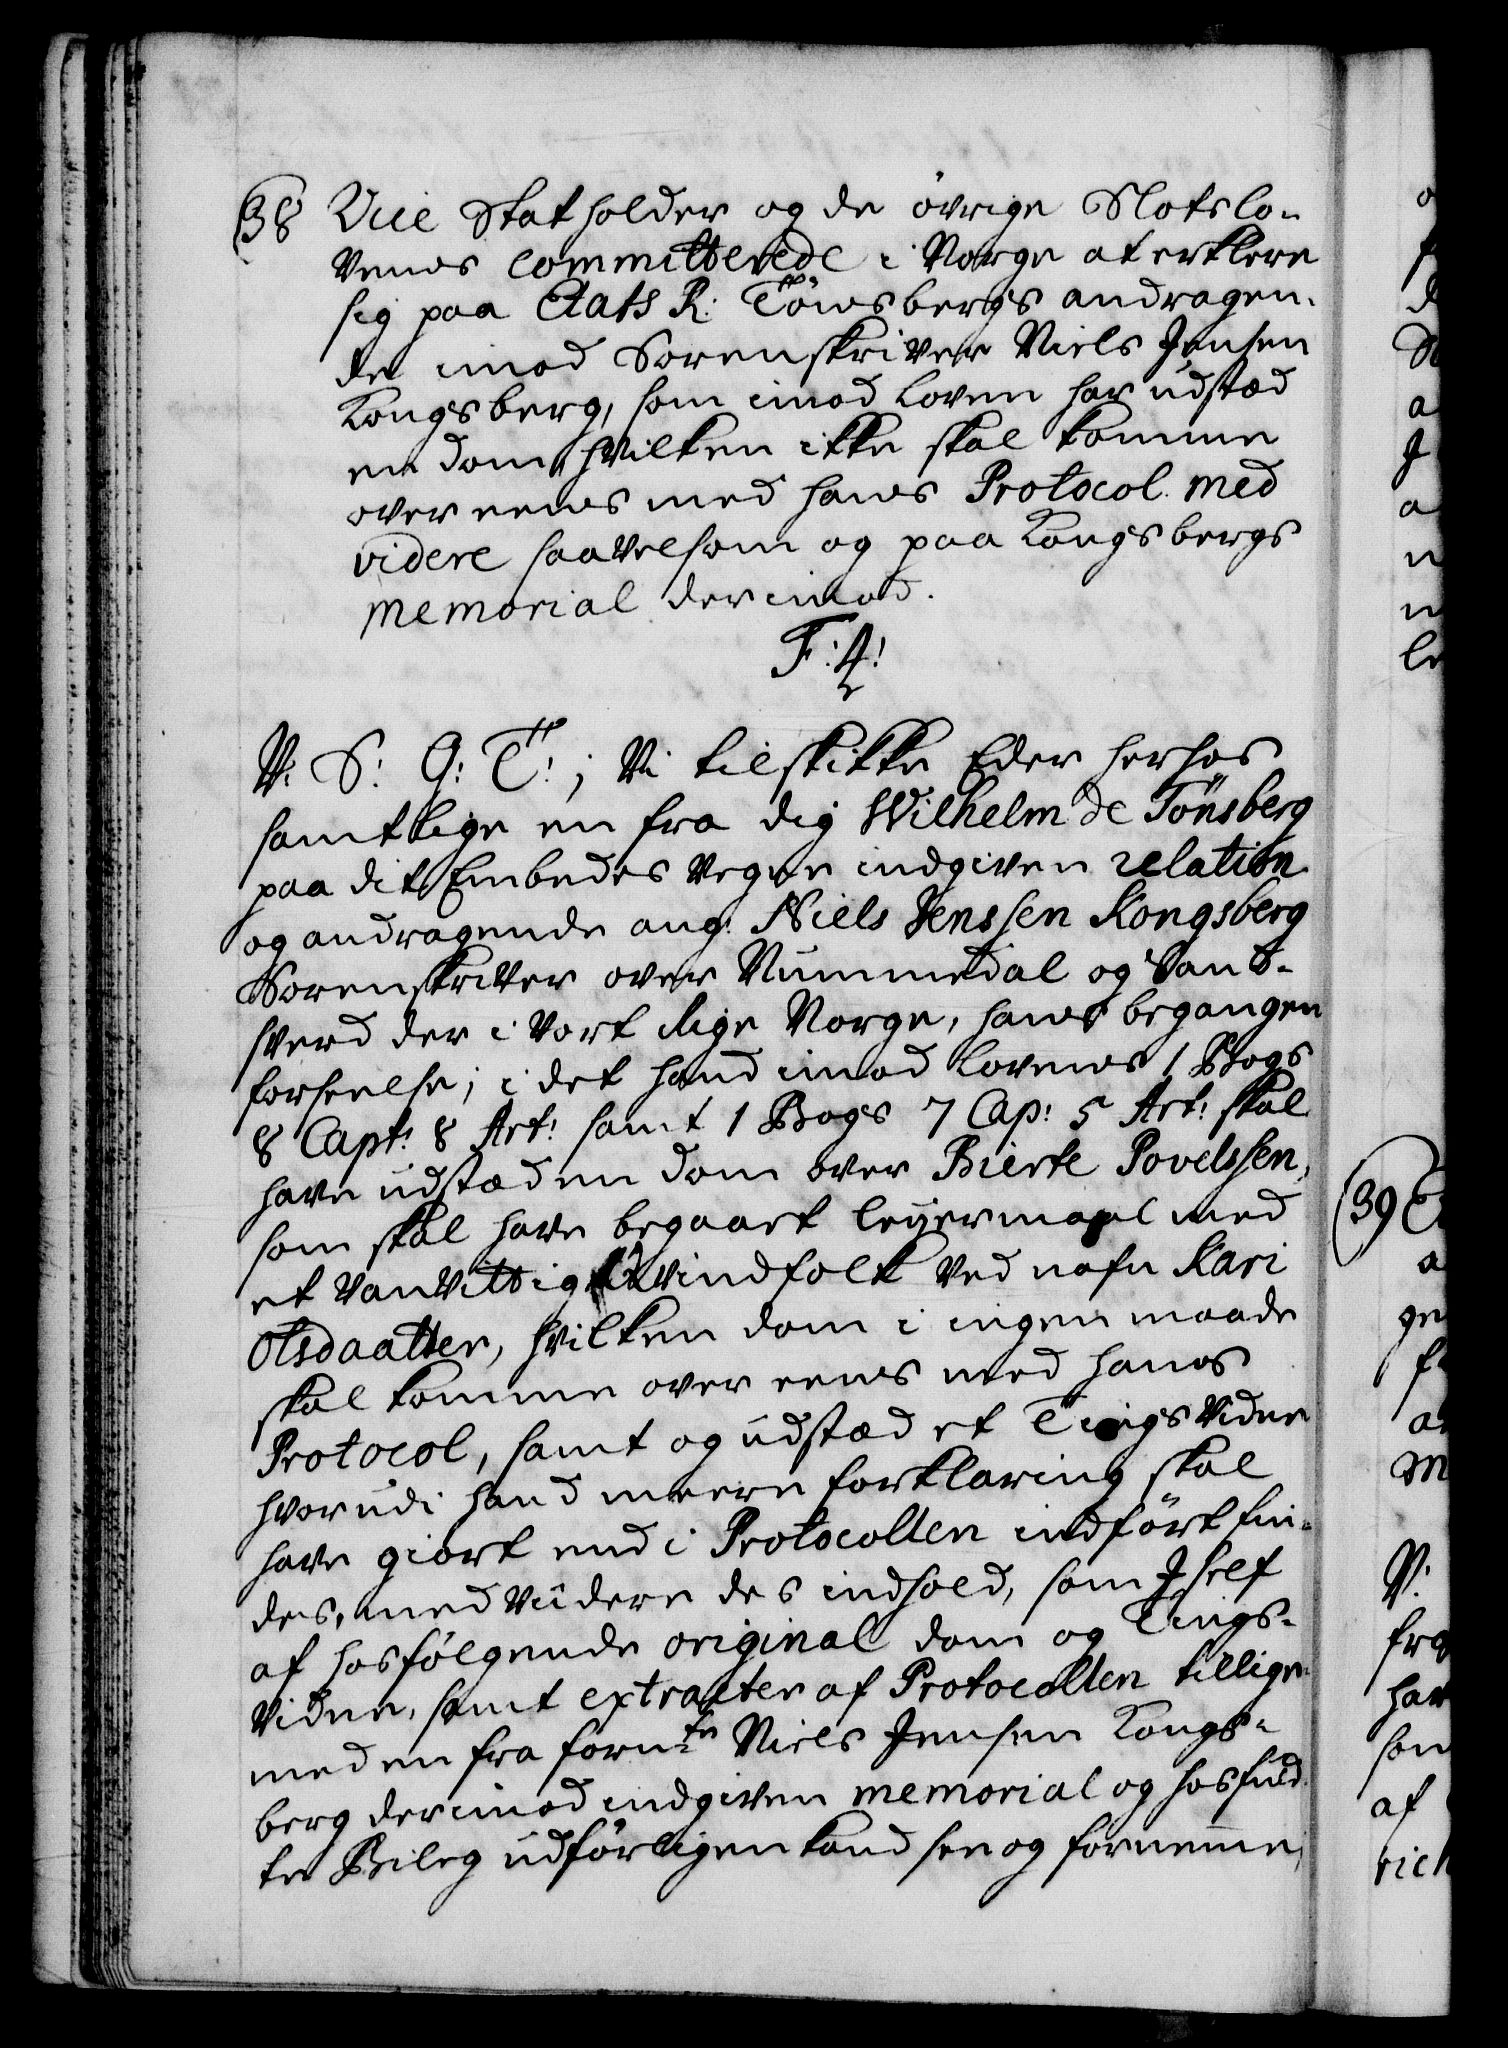 38 Vice Statholder og de övrige Slotslo-
vens committerede i Norge at erklere
sig paa Etats R: Tönsbergs andragen-
de imod Sorenskriver Niels Jensen
Kongsberg, som imod loven har udstæd
en dom, hvilken ikke skal komme
over eens med hans Protocol. med
videre saavelsom og paa Kongsbergs
memorial derimod.
F: 4:
V: S: G: T:; Vi tilskikke Eder herhos
samtlige en fra dig Wilhelm de Tönsberg
paa dit Embedes vegne indgiven relation
og andragende ang: Niels Jenssen Kongsberg
Sorenskriver over Nummedal og Sand-
sverd der i Vort Rige Norge, hans begangen
forseelse; i det hand imod Lovens 1 Bogs
8 Capt: 8 Art: samt 1 Bogs 7 Cap: 5 Art: skal
have udstæd en dom over Bierte Povelssen,
som skal have begaaet leyermaal med
et vanvittig qvindfolk ved nafn Kari
Olsdaatter, hvilken dom i ingen maade
skal komme over eens med hans
Protocol, samt og udstæd et Tingsvidne
hvorudi hand meere forklaring skal
have giort end i Protocollen indfört fin-
des, med viidere des indhold, som I self
af hosfölgende original dom og Tings-
vidne, samt extracter af Protocollen tillige-
med en fra fornte Niels Jensen Kongs-
berg derimod indgiven memorial og hosfuld-
te Beileg udförligen kand see og fornemme,